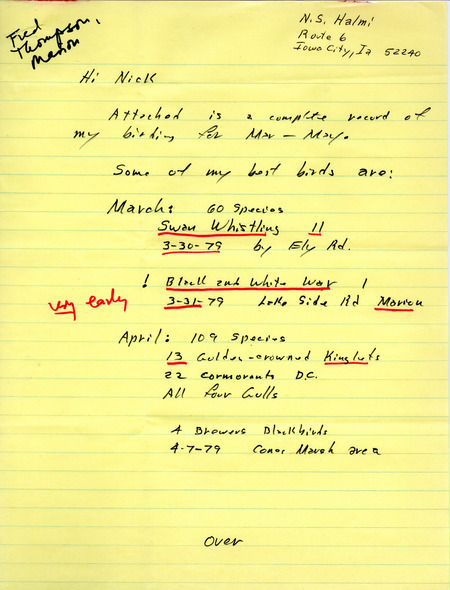 Fred
Thompson,
Marion
N.S. Halmi
Route 6
Iowa City, Ia 52240
Hi Nick
Attached is a complete record of
my birding for Mar — May.
Some of my best birds are:
March: 60 Species
Swan Whistling 11
3-30-79 by Ely Rd.
! Black and White War 1
very early 3-31-79 Lake Side Rd Marion
April: 109 Species
13 Golden-crowned Kinglets
22 Cormorants D.C.
All four Gulls
4 Brewers Blackbirds
4-7-79 Cones Marsh area
Over